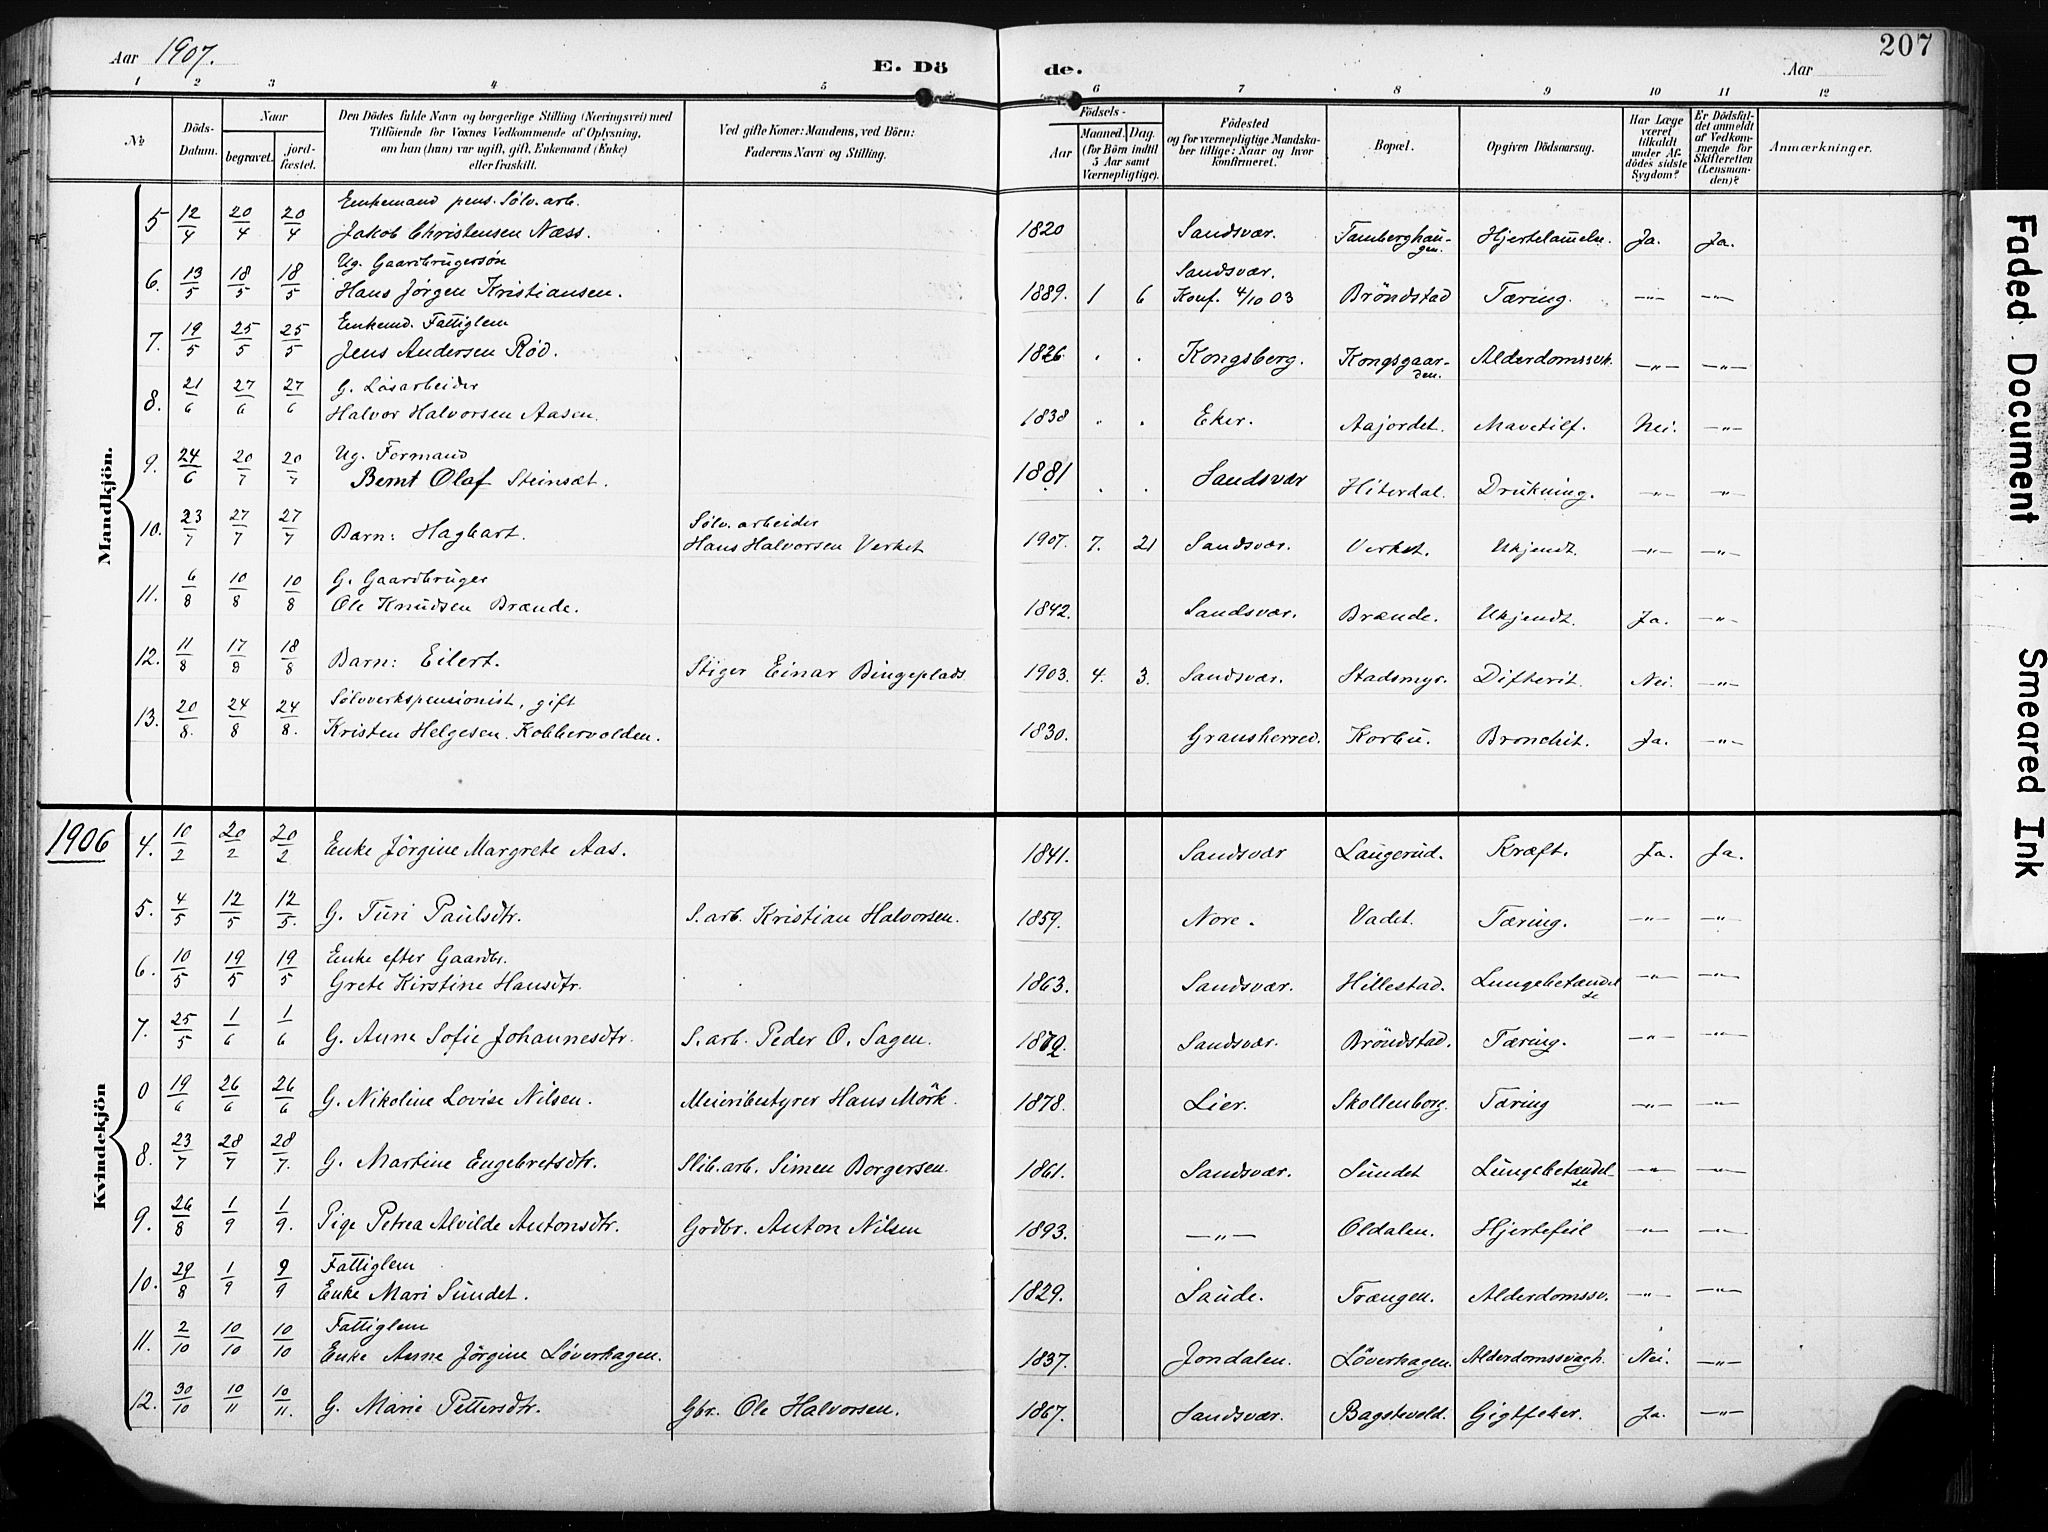 Aar 1907. E. Dö de. Aar 207
1 2 3 4 5 6 7 8 9 10 11 12
No Döds-Datum. Naar begravet. jord-fæstet. Den Dödes fulde Navn og borgerlige Stilling (Næringsvei) med Tilföiende for Voxnes Vedkommende af Oplysning, om han (hun) var ugift, gift, Enkemand (Enke) eller fraskilt. Ved gifte Koner: Mandens, ved Börn: Faderens Navn og Stilling. Födsels- Aar Maaned. Dag. (for Börn indtil 5 Aar samt Værnepligtige). Födested og for værnepligtige Mandskaber tillige: Naar og hvor konfirmeret. Bopæl. Opgiven Dödsaarsag. Har Læge været tilkaldt under Afdödes sidste Sygdom? Er Dödsfaldet anmeldt af Vedkommende for Skifteretten (Lensmanden)? Anmærkninger.
Mandkjön.
5 12/4 20/4 20/4 Enkemand pens. Sölv.arb. Jakob Christensen Næss. 1820 Sandsvær. Tamberghaugen. Hjertelammelse. Ja. Ja.
6. 13/5 18/5 18/5 Ug. Gaardbrugersøn Hans Jørgen Kristiansen. 1889. 1 6 Sandsvær. Konf. 4/10 03 Bröndstad Tæring. —"— —"—
7. 19/5 25/5 25/5 Enkemd. Fattiglem Jens Andersen Röd. 1826 . . Kongsberg. Kongsgaarden. Alderdomssvk. —"— —"—
8. 21/6 27/6 27/6 G. Løsarbeider Halvor Halvorsen Aasen. 1838 . . Eker. Aajordet. Mavetilf. Nei. —"—
9. 24/6 20/7 20/7 Ug. Formand Bernt Olaf Steinsæt. 1881 . . Sandsvær Hiterdal. Drukning. —"— —"—
10. 23/7 27/7 27/7 Barn: Hagbart. Sölv.arbeider Hans Halvorsen Verket 1907. 7. 21 Sandsvær. Verket. Ukjendt. —"— —"—
11. 6/8 10/8 10/8 G. Gaardbruger Ole Knudsen Brænde. 1842. Sandsvær. Brænde. Ukjendt. Ja. —"—
12. 11/8 17/8 18/8 Barn: Eilert. Stiger Einar Bingeplads 1903. 4. 3. Sandsvær. Stadsmyr. Difterit. Nei. —"—
13. 20/8. 24/8 24/8. Sølvverkspensionist, gift Kristen Helgesen Kobbervolden. 1830. Gransherred. Korbu. Bronchit. Ja. —"—
1906
Kvindekjön
4. 10/2 20/2 20/2 Enke Jørgine Margrete Aas. 1841. Sandsvær Laugerud. Kræft. Ja. Ja.
5. 4/5 12/5 12/5. G. Turi Paulsdtr. S.arb. Kristian Halvorsen. 1859. Nore. Vadet. Tæring. —"— —"—
6. 10/5 19/5 19/5 Enke efter Gaardbr. Grete Kirstine Hansdtr. 1863. Sandsvær. Hillestad. Lungebetændelse —"— —"—
7. 25/5 1/6 1/6 G. Anne Sofie Johannesdtr. S.arb. Peder O. Sagen. Sandsvær. Bröndstad. Tæring. —"— —"—
0 19/6 26/6 26/6 G. Nikoline Lovise Nilsen. Meieribestyrer Hans Mörk. 1878. Lier. Skollenborg. Tæring —"— —"—
8. 23/7 28/7 28/7. G. Martine Engebretsdtr. Slib.arb. Simen Borgersen. 1861. Sandsvær. Sundet Lungebetændelse —"— —"—
9. 26/8 1/9 1/9. Pige Petrea Alvilde Antonsdtr. Grdbr. Anton Nilsen 1893. —"— Oldalen. Hjertefeil —"— —"—
10. 29/8 1/9 9/9 Fattiglem Enke Mari Sundet. 1829. Saude. Trængen. Alderdomssv. —"— —"—
11. 2/10 10/10 10/10 Fattiglem Enke Anne Jørgine Løverhagen. 1837. Jondalen. Löverhagen. Alderdomssvagh. Nei. —"—
12. 30/10 10/11 10/11. G. Marie Pettersdtr. Gbr. Ole Halvorsen. 1867. Sandsvær. Bagstevold. Gigtfeber. Ja. —"—
Faded Document
Smeared Ink